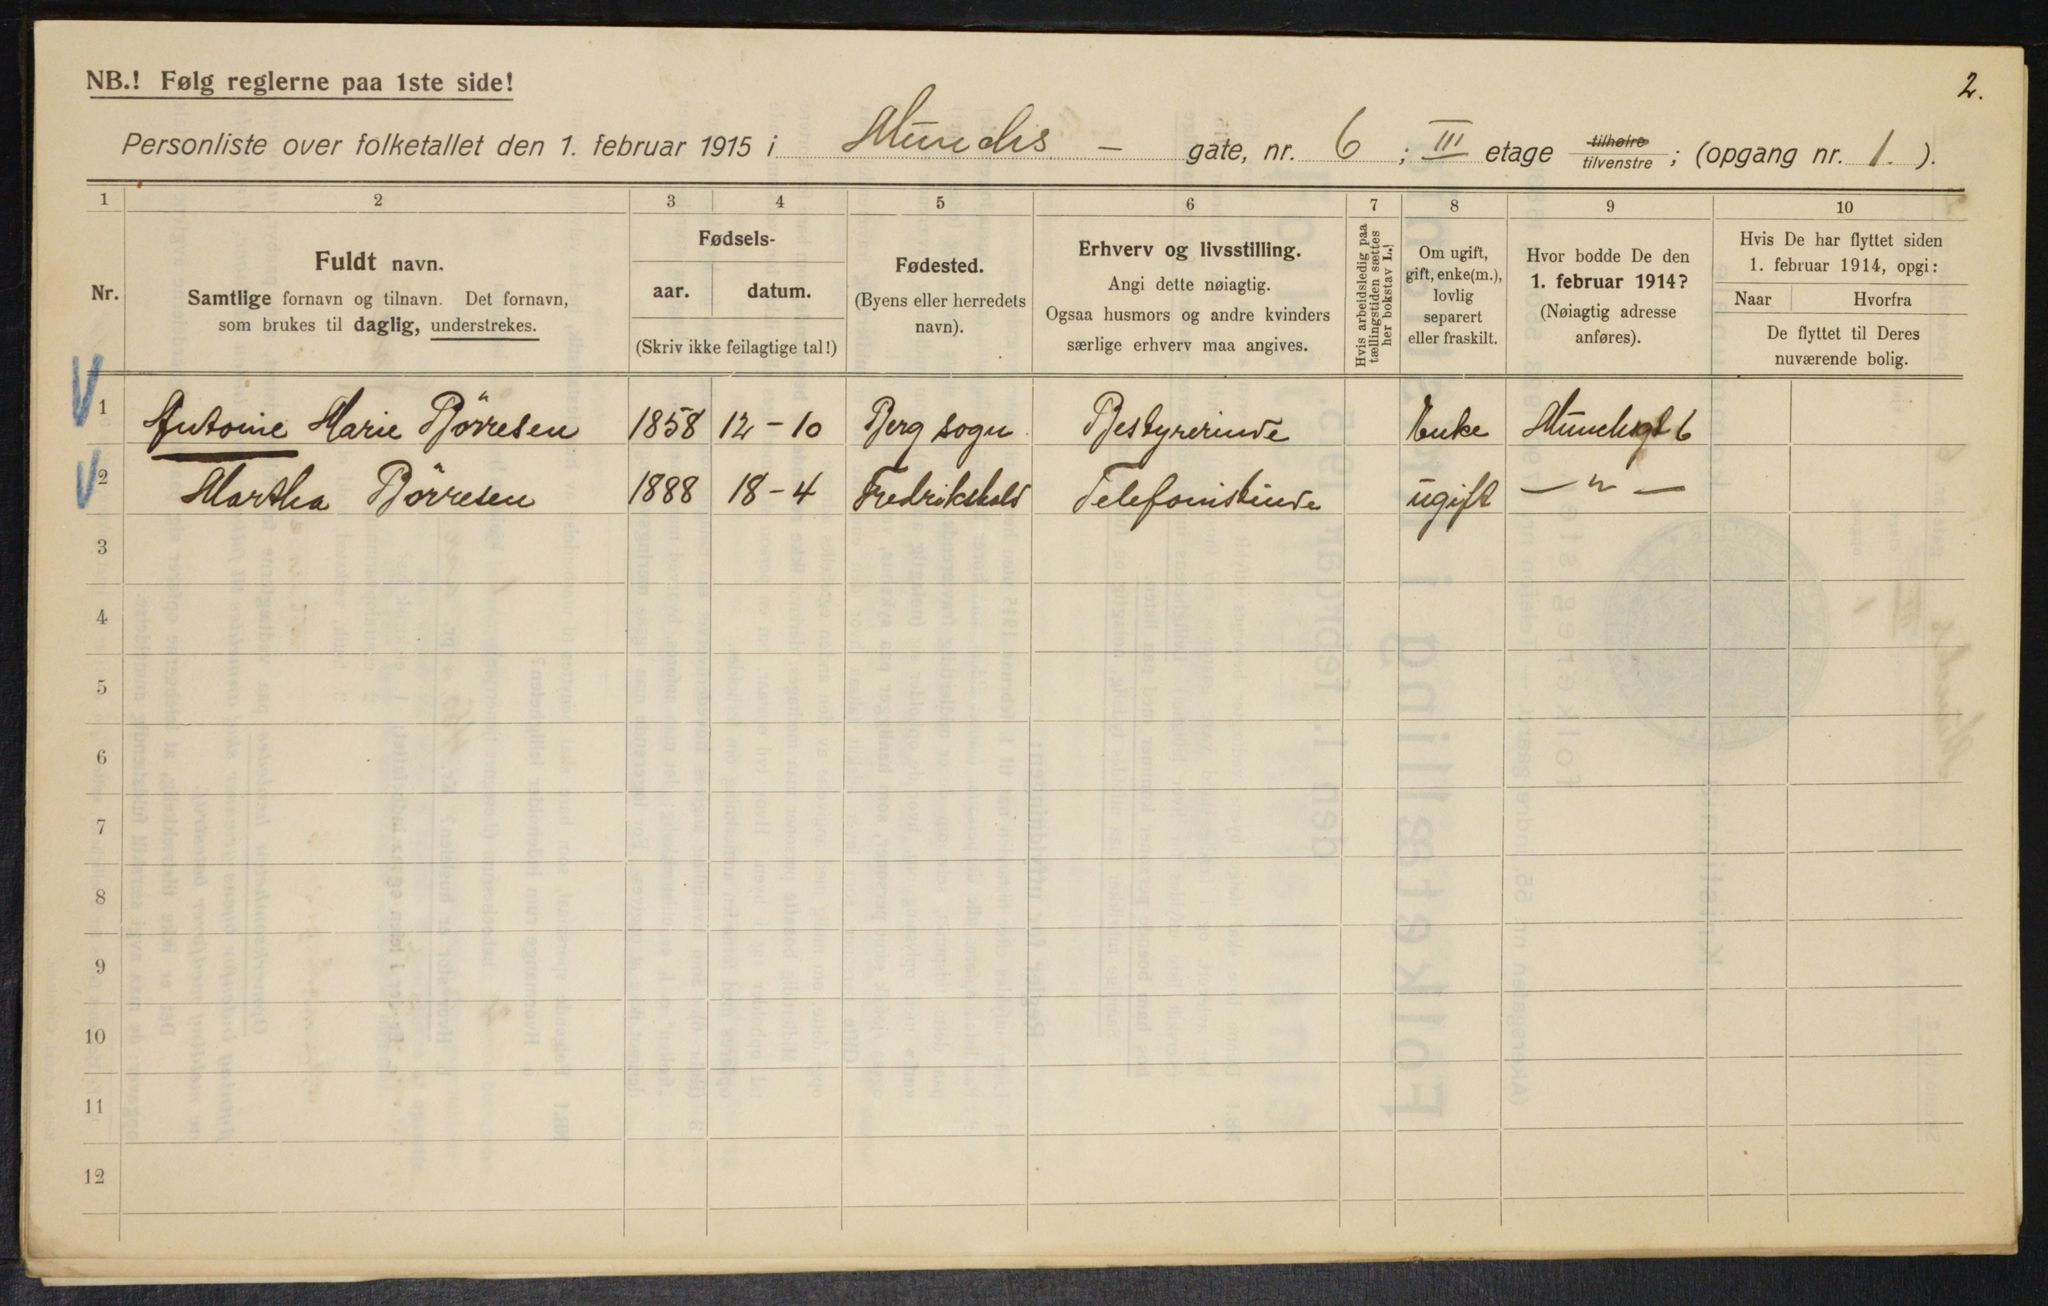 2.
NB.! Følg reglerne paa 1ste side!
Personliste over folketallet den 1. februar 1915 i Munchs - gate, nr. 6 ; III etage tilhøire tilvenstre ; (opgang nr. 1. ).
1 2 3 4 5 6 7 8 9 10
Nr.
Fuldt navn.
Samtlige fornavn og tilnavn. Det fornavn,
som brukes til daglig, understrekes.
Fødsels-
aar. datum.
(Skriv ikke feilagtige tal!)
Fødested.
(Byens eller herredets
navn).
Erhverv og livsstilling.
Angi dette nøiagtig.
Ogsaa husmors og andre kvinders
særlige erhverv maa angives.
Hvis arbeidsledig paa
tællingstiden sættes
her bokstav L.!
Om ugift,
gift, enke(m.),
lovlig
separert
eller fraskilt.
Hvor bodde De den
1. februar 1914?
(Nøiagtig adresse
anføres).
Hvis De har flyttet siden
1. februar 1914, opgi:
Naar Hvorfra
De flyttet til Deres
nuværende bolig.
1 Antonie Marie Börresen 1858 12-10 Berg sogn Bestyrerinde Enke Munchsgt 6
2 Martha Börresen 1888 18-4 Fredrikshald Telefonistinde ugift — " —
3
4
5
6
7
8
9
10
11
12